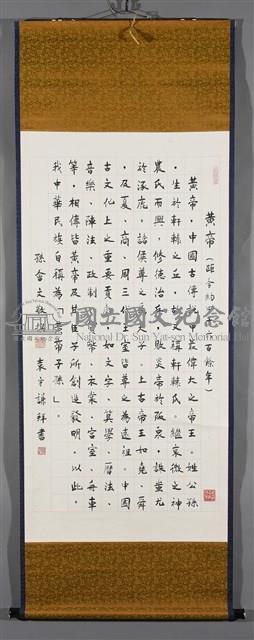 黃帝（距今約　百餘年）
黃帝，中國古傳說中最偉大之帝王。姓公孫
，生於軒轅之丘，故又稱軒轅氏。繼衰微之神
農氏而興，修德治　，敗炎帝於阪泉，誅蚩尤
於涿鹿，諸侯尊之　天子。上古帝王如堯、舜
，及夏、商、周三代　室皆尊之為遠祖。中國
古文化上之重要貢　如文字、算學、曆法、
音樂、陣法、政制　幣、衣裳、宮室、舟車
等，相傳皆黃帝及　臣子所創造發明。以此，
我中華民族自稱為「黃帝子孫」。
孫會文敬
袁守謙拜書
國立國父紀念館
National Dr. Sun Yat-sen Memorial Hall